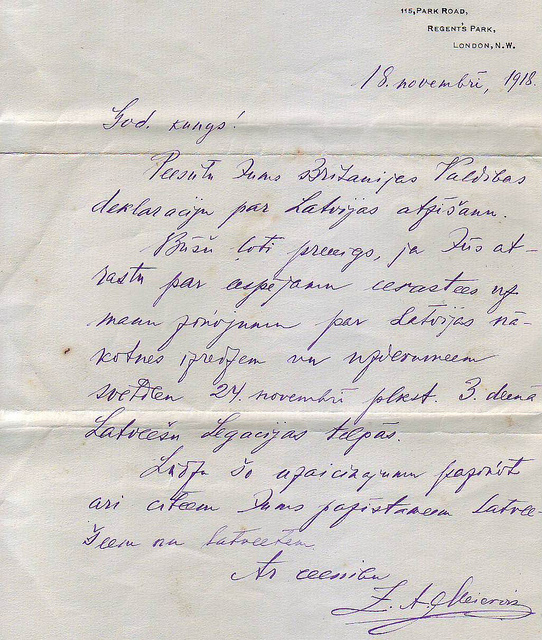 115, PARK ROAD,
REGENT'S PARK,
LONDON, N.W.
18. novembrī, 1918.
God. kungs!
Peesūtu Jums Britanijas Valdibas
deklaraciju par Latvijas atzišanu.
Būšu ļoti preecigs, ja Jūs at-
rastu par eespejamu eerastees uz
manu ziņojumu par Latvijas nā-
kotnes izredzem un uzdevumeem
svētdien 24. novembrī plkst. 3. deenā
Latveešu Legacijas telpās.
Lūdzu šo uzaicinajumu paziņot
ari citeem Jums pazistameem latvee-
šeem un latveetem
Ar ceenibu
Z. A. Meierovics